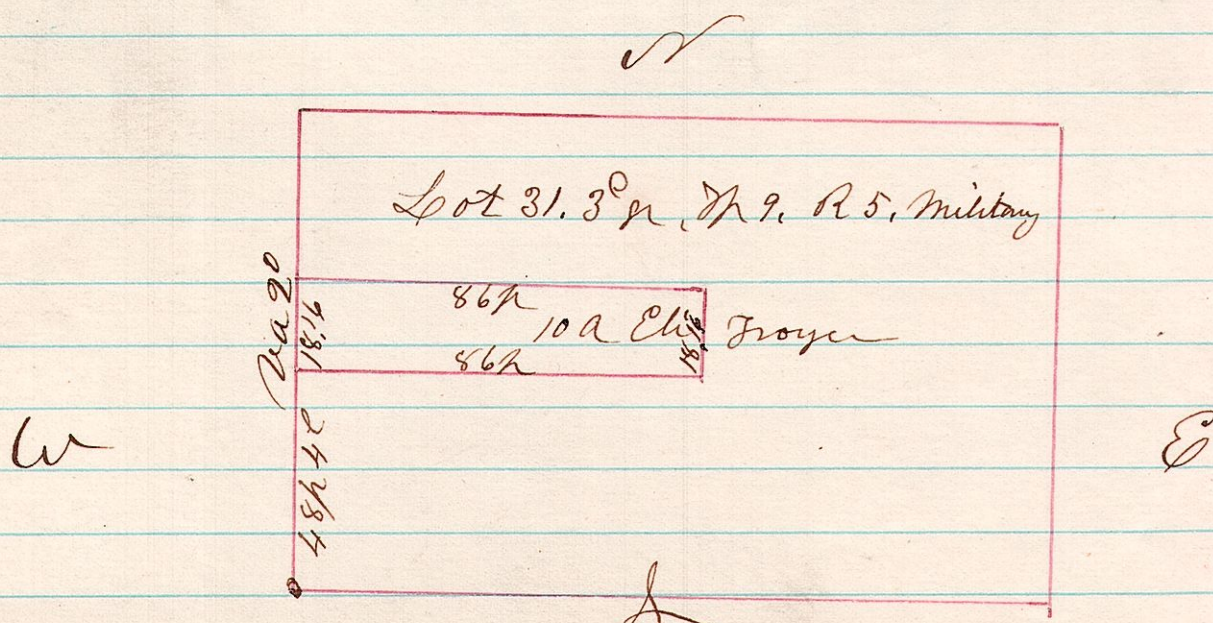 N
Lot 31. 3 qr, Tp 9. R 5, Military
Va 2°
86p
18,16
10 A Eli Troyer
18,16
86p
W
E
48p 4l
S